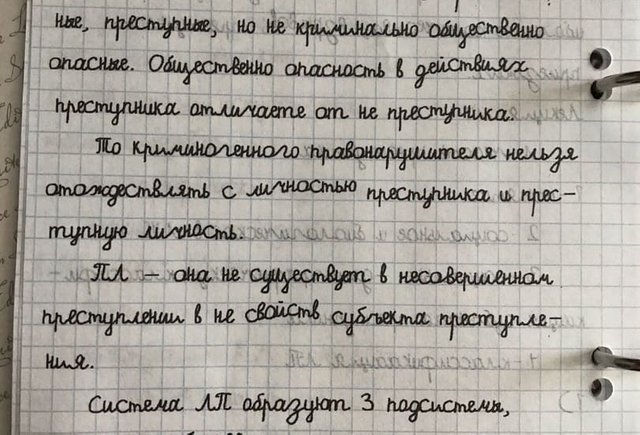 ные, преступные, но не криминально общественно
опасные. Общественно опасность в действиях
преступника отличаете от не преступника.
То криминогенного правонарушителя нельзя
отождествлять с личностью преступника и прес-
тупную личность.
ПЛ — она не существует в несовершенном
преступлении в не свойств субъекта преступле-
ния.
Система ЛП образуют 3 подсистемы,